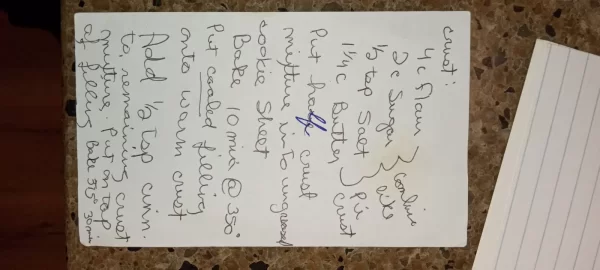 Crust:
4 c Flour
2 c Sugar
1/2 tsp Salt
1 1/4 c Butter
} Combine
like
} Pie
Crust
Put half crust
mixture into ungreased
cookie sheet
Bake 10 min @ 350°
Put cooled filling
onto warm crust
Add 1/2 tsp cinn.
to remaining crust
mixture. Put on top
of filling Bake 375° 30 min